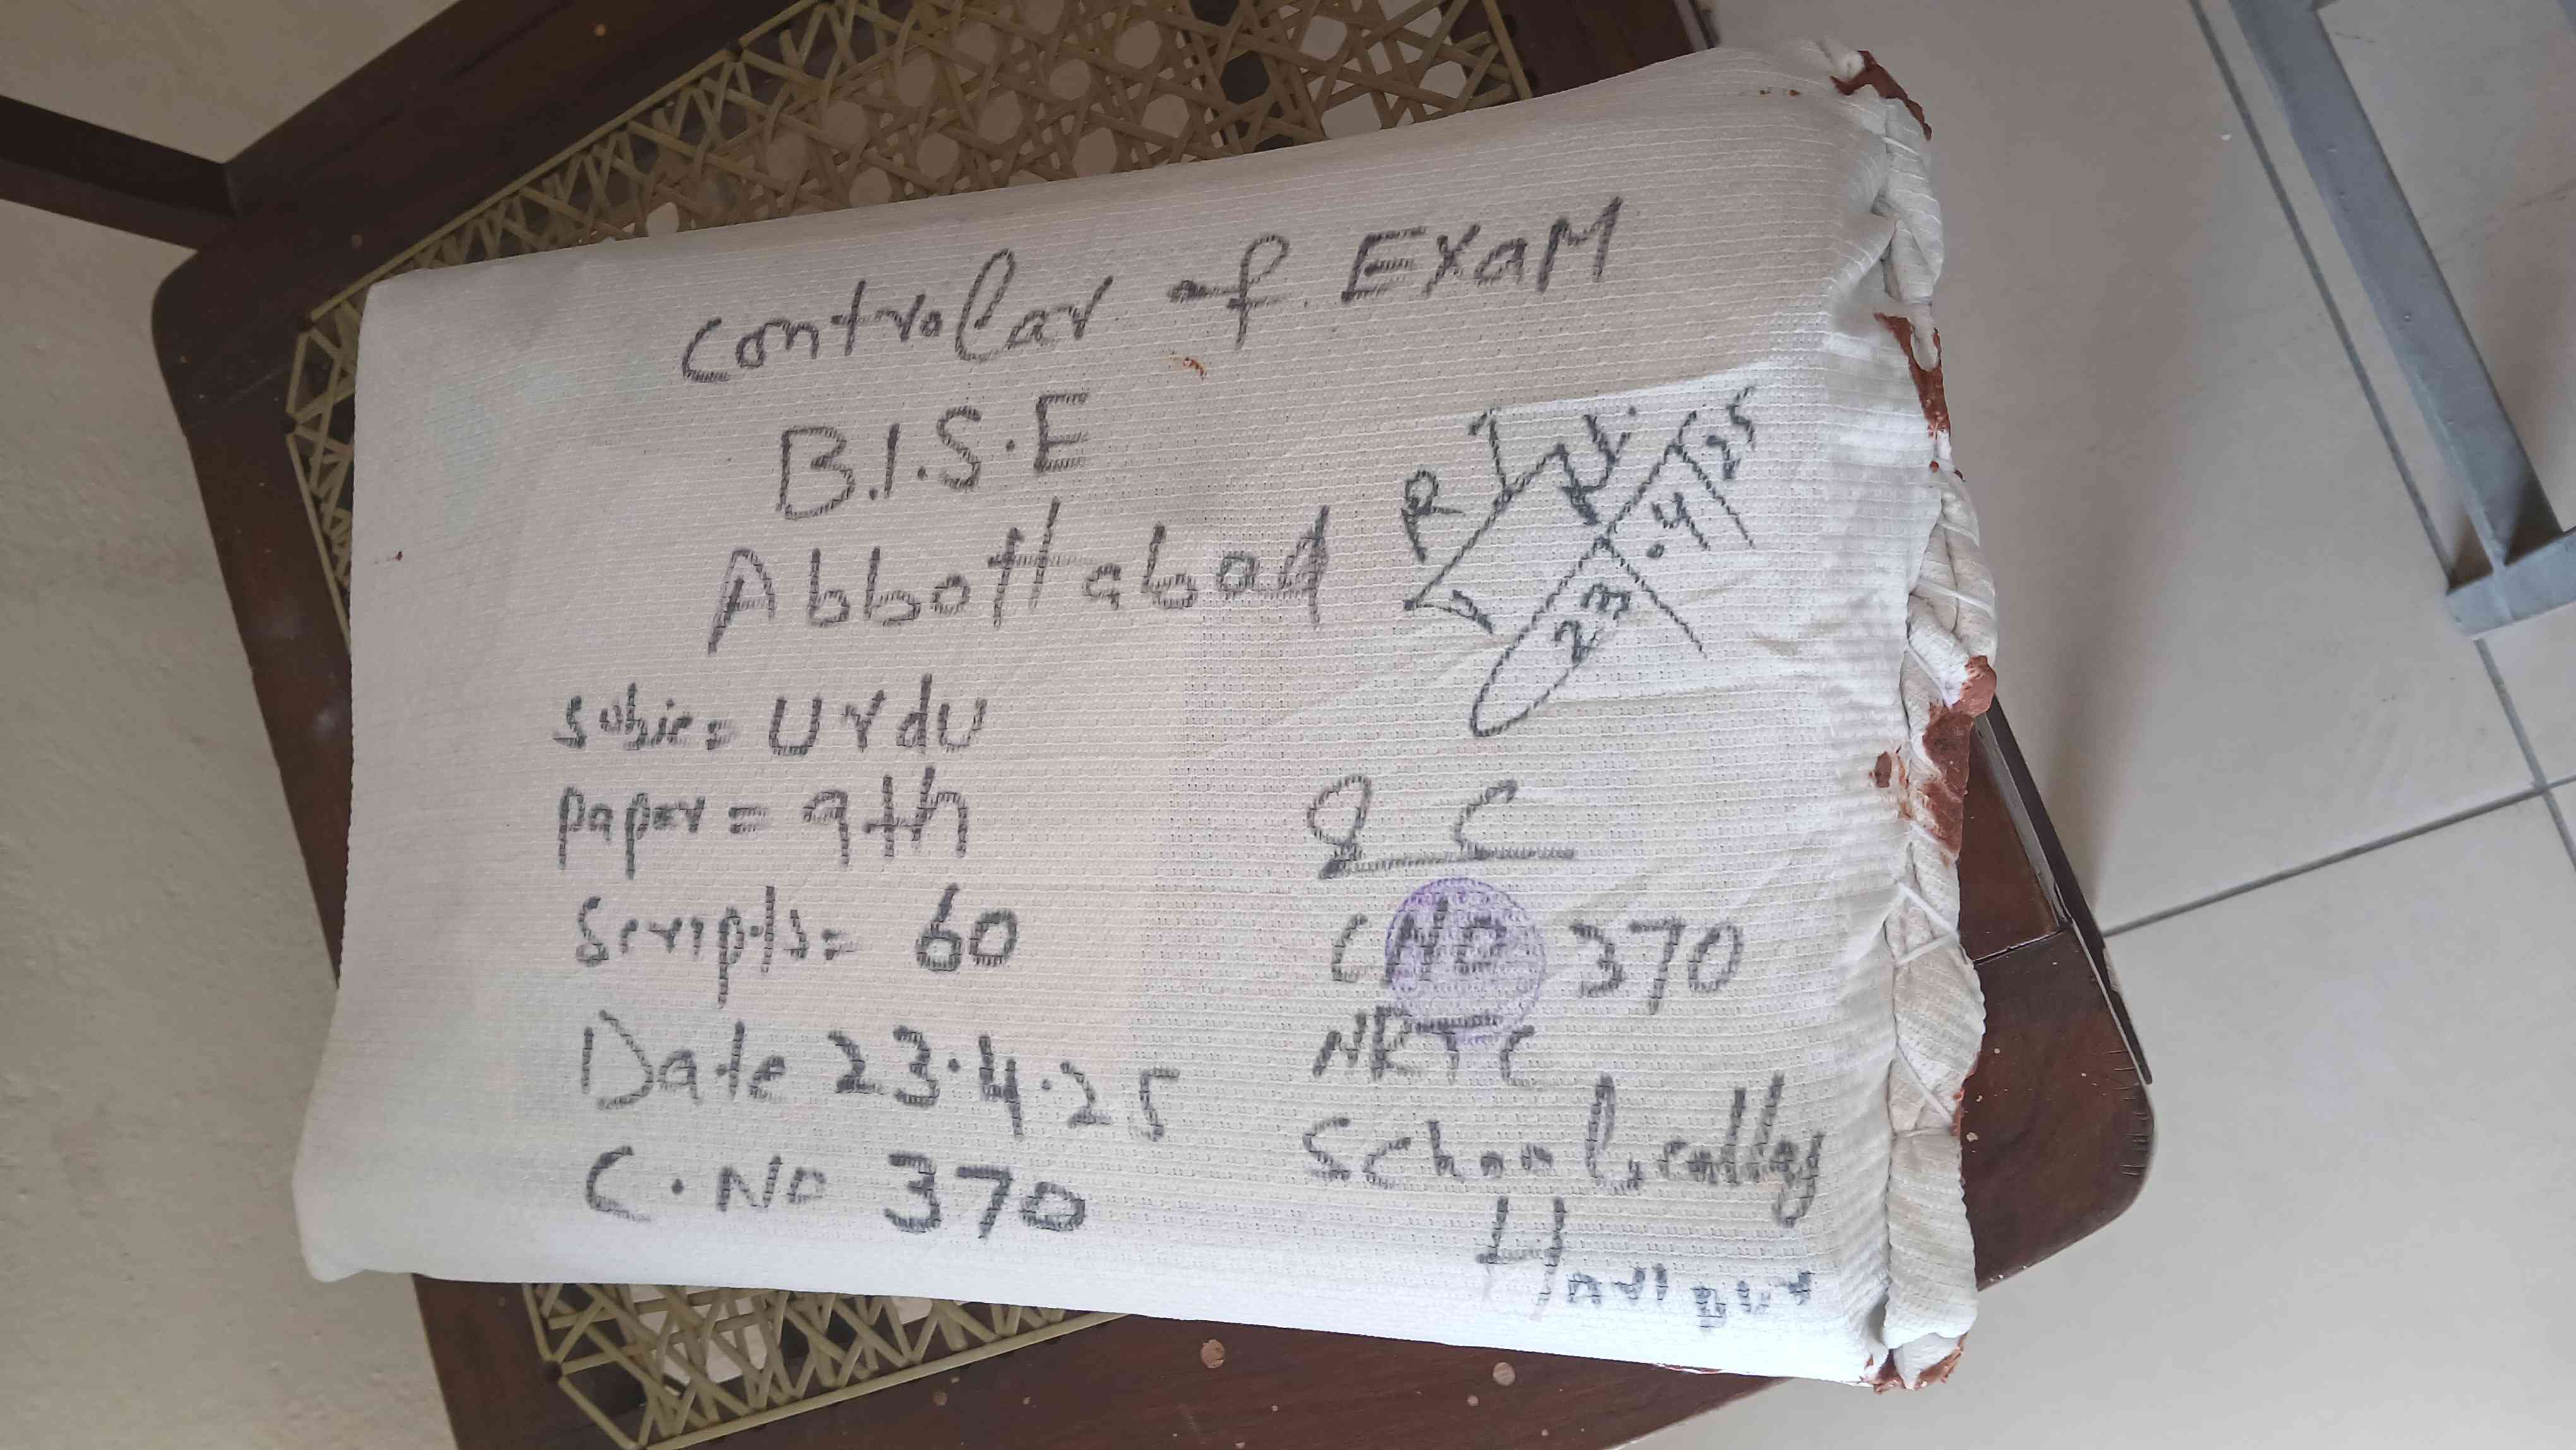 Controlar of EXAM
B.I.S.E
Abbottabad
Subje = Urdu
paper = 9th
Scripts = 60
Date 23.4.25
C. No 370
23.4.25
S C
C No 370
NRTC
School
Haripur